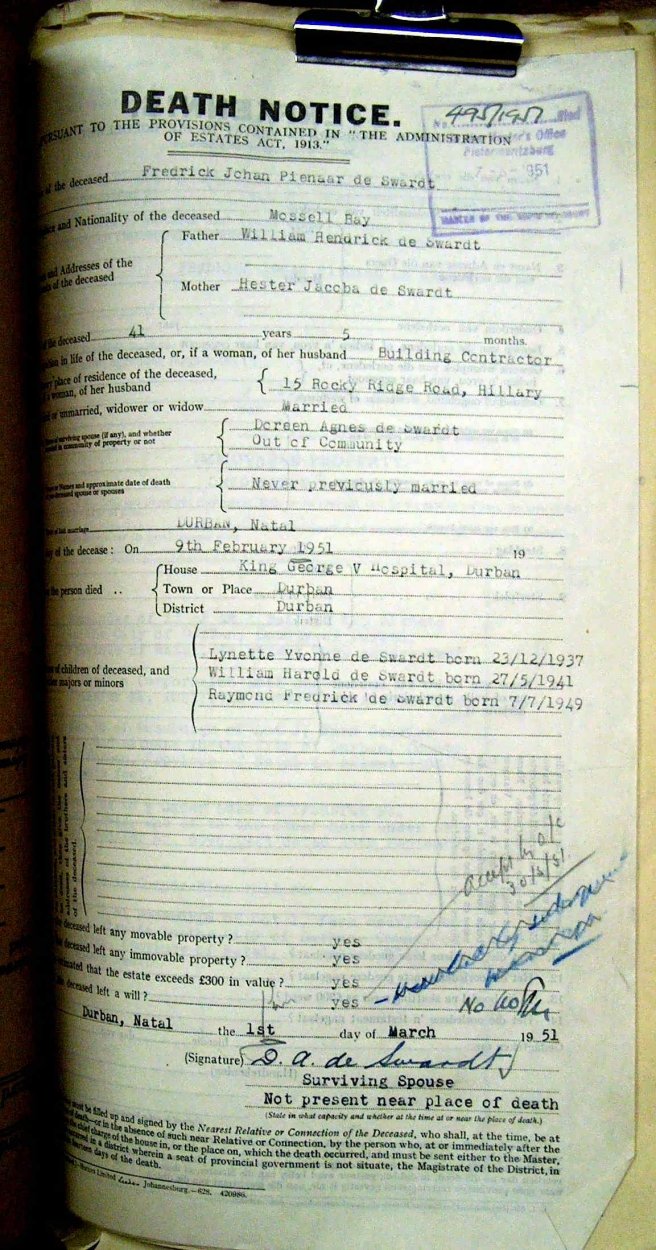 DEATH NOTICE.
PURSUANT TO THE PROVISIONS CONTAINED IN "THE ADMINISTRATION
OF ESTATES ACT, 1913."
495/1951
Master's Office
Pietermaritzburg
951
of the deceased Fredrick Johan Pienaar de Swardt
and Nationality of the deceased Mossell Bay
Father William Hendrick de Swardt
and Addresses of the
of the deceased
Mother Hester Jacoba de Swardt
the deceased 41 years 5 months.
in life of the deceased, or, if a woman, of her husband Building Contractor
place of residence of the deceased,
woman, of her husband
15 Rocky Ridge Road, Hillary
or unmarried, widower or widow Married
of surviving spouse (if any), and whether
in community of property or not
Doreen Agnes de Swardt
Out of Community
Names and approximate date of death
spouse or spouses
Never previously married
marriage DURBAN, Natal
of the decease: On 9th February 1951 19
the person died ..
House King George V Hospital, Durban
Town or Place Durban
District Durban
of children of deceased, and
majors or minors
Lynette Yvonne de Swardt born 23/12/1937
William Harold de Swardt born 27/5/1941
Raymond Fredrick de Swardt born 7/7/1949
of the deceased.
deceased left any movable property? yes
deceased left any immovable property? yes
that the estate exceeds £300 in value? yes
deceased left a will? yes
No
Durban, Natal the 1st day of March 1951
(Signature) D. A. de Swardt
Surviving Spouse
Not present near place of death
(State in what capacity and whether at the time at or near the place of death.)
must be filled up and signed by the Nearest Relative or Connection of the Deceased, who shall, at the time, be at
death—or in the absence of such near Relative or Connection, by the person who, at or immediately after the
the chief charge of the house in, or the place on, which the death occurred, and must be sent either to the Master,
occurred in a district wherein a seat of provincial government is not situate, the Magistrate of the District, in
fourteen days of the death.
Limited Johannesburg.—628. 420986.